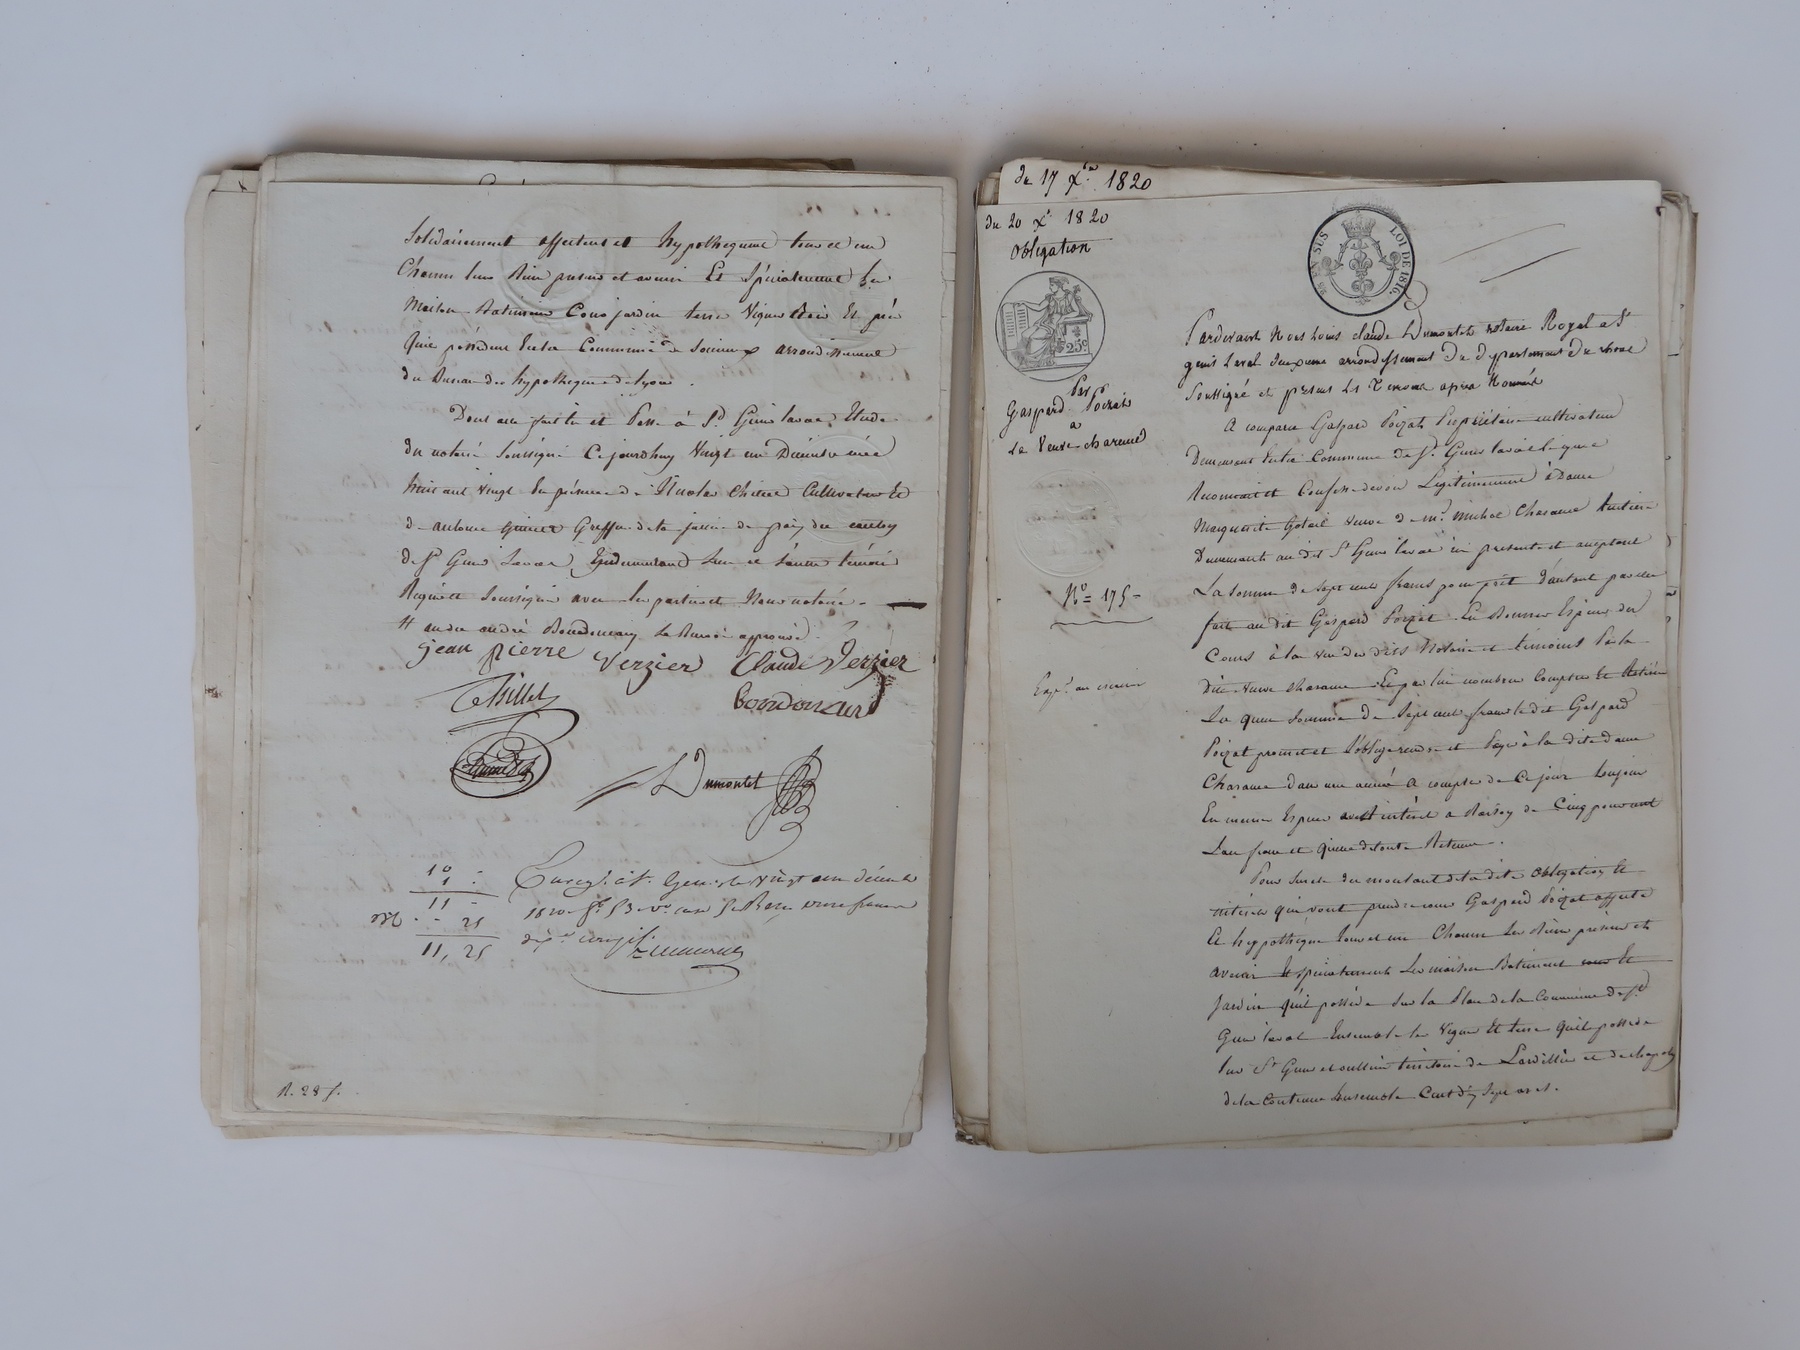 Solidairement affectent et hypothequent tous et un
Chacun leurs Bien present et avenir Et Spécialement les
Maison Batiment Cour jardin terre Vigne Bois Et pré
Qu'ils possèdent sur la Commune de Soucieux arrondissement
du Bureau des hypotheques de Lyon.
Dont acte fait lu et Passé à St Genis laval Etude
du notaire Soussigné Cejourdhuy Vingt un Décembre mil
huit cent Vingt En présence de Nicolas Chillet Cultivateur Et
d'antoine Greffier de la justice de paix du canton
de St Genis Laval y demeurant tous deux témoins
Requis et Soussignés avec les parties et Nous notaire.
andré Bourdonnay approuvé
jean pierre verzier Claude Verzier
Chillet
Dumontet
10
1
11
25
11, 25
Enregt. à St. Genis le Vingt un décembre
1820 fo. 53 vo. case 5 Reçu onze francs
R. 28 f.
du 17 Xbre 1820
du 20 Xe 1820
Obligation
EN SUS LOI DE 1816.
25c
Par
Gaspard Poizat
a
La Veuve charamel
No = 175 =
Pardevant Nous Louis claude Dumontet notaire Royal a St
genis Laval deuxieme arrondissement du departement du rhone
Soussigné et present Les Temoins apres Nommés
A comparu Gaspard Poizat Propriétaire cultivateur
Demeurant En la Commune de St. Genis laval Lequel
Reconnait et Confesse devoir Légitimement à Dame
Marguerite Veuve de mr. Michel Charamel Rentiere
Demeurante au dit St Genis laval ici presente et acceptant
La Somme de Sept cent francs pour prêt d'autant par elle
fait au dit Gaspard Poizat En Bonnes Espèces du
Cours à la vue des dits Notaire et témoins Par la
dite veuve charamel Et par lui nombrée Comptée Et Retirée
La quelle Somme de Sept cent francs le dit Gaspard
Poizat promet et S'oblige rendre et Payer à la dite dame
Charamel dans une année A compter de Ce jour
En meme Espèces avec intérêt a Raison de Cinq pour cent
L'an franc et quitte de toute Retenue.
Pour Sureté du montant de la dite Obligation Et
intérêts qui vont prendre cours Gaspard Poizat affecte
Et hypothéque tous et un Chacun Les Biens présent et
avenir Et spécialement Les maison Batiment cour Et
Jardin qu'il possède Sur la Place de la Commune de St
Genis laval Ensemble les Vigne Et terre Qu'il possede
Sur St Genis et oullins térritoire de et de
de la Contenue Ensemble Cent dix Sept ares.